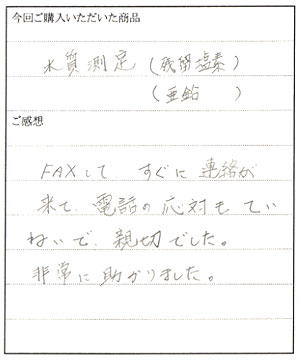 今回ご購入いただいた商品
水質測定（残留塩素）
（亜鉛　　）
ご感想
FAXして すぐに 連絡が
来て、電話の応対もてい
ねいで、親切でした。
非常に助かりました。